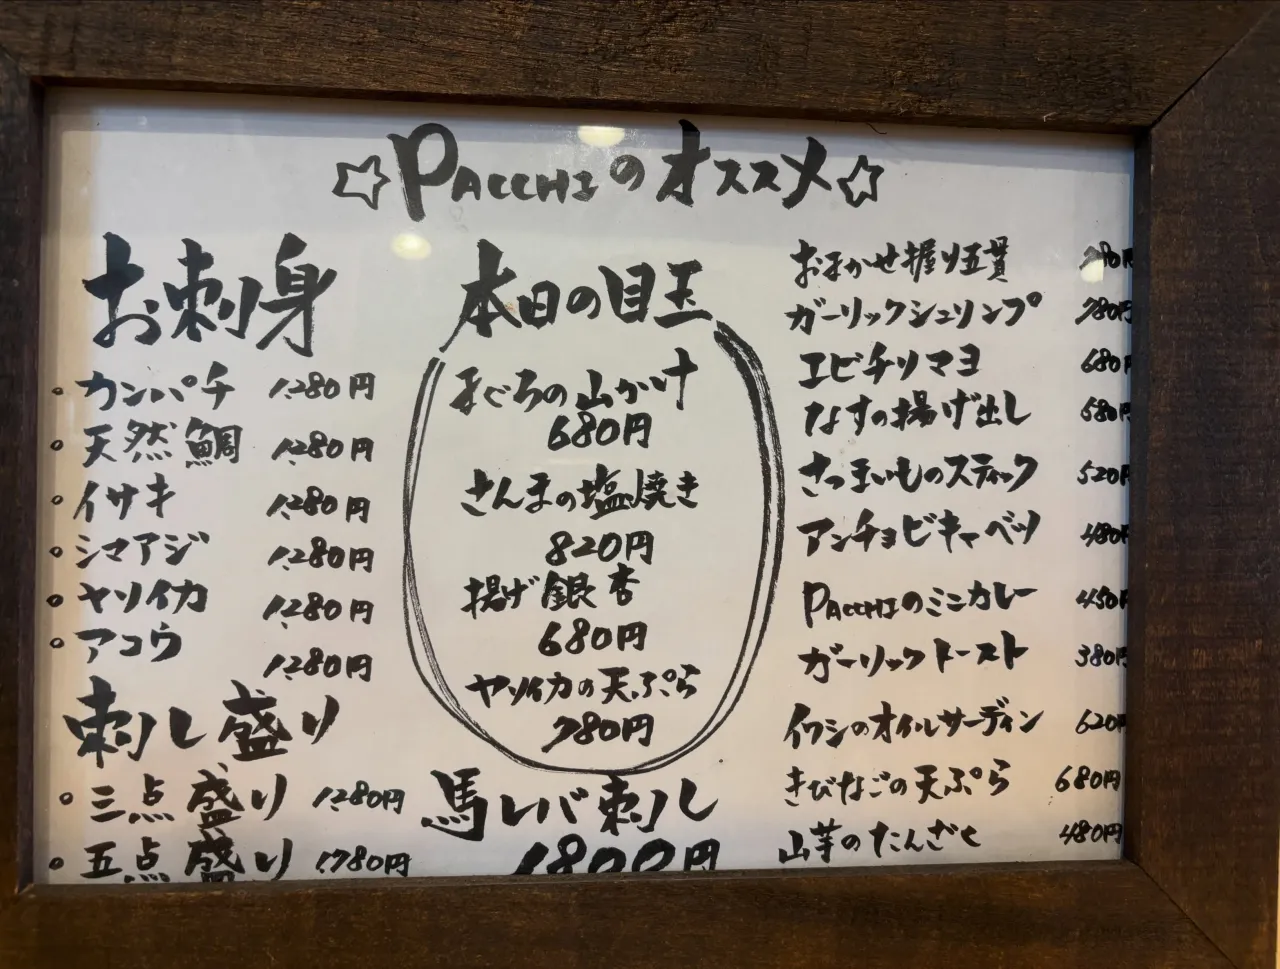 ☆PACCHIのオススメ☆
お刺身
・カンパチ 1,280円
・天然鯛 1,280円
・イサキ 1,280円
・シマアジ 1,280円
・ヤリイカ 1,280円
・アコウ 1,280円
刺し盛り
・三点盛り 1,280円
・五点盛り 1,780円
本日の目玉
まぐろの山かけ
680円
さんまの塩焼き
820円
揚げ銀杏
680円
ヤリイカの天ぷら
780円
馬レバ刺し
1,800円
おまかせ握り五貫
ガーリックシュリンプ 780円
エビチリマヨ 680円
なすの揚げ出し 580円
さつまいものスティック 520円
アンチョビキャベツ 480円
PACCHIのミニカレー 450円
ガーリックトースト 380円
イワシのオイルサーディン 620円
きびなごの天ぷら 680円
山芋のたんざく 480円